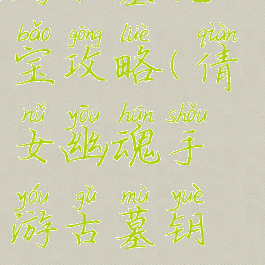 bǎo gōng lüè qiàn
宝攻略(倩
nǚ yōu hún shǒu
女幽魂手
yóu gǔ mù yuè
游古墓钥